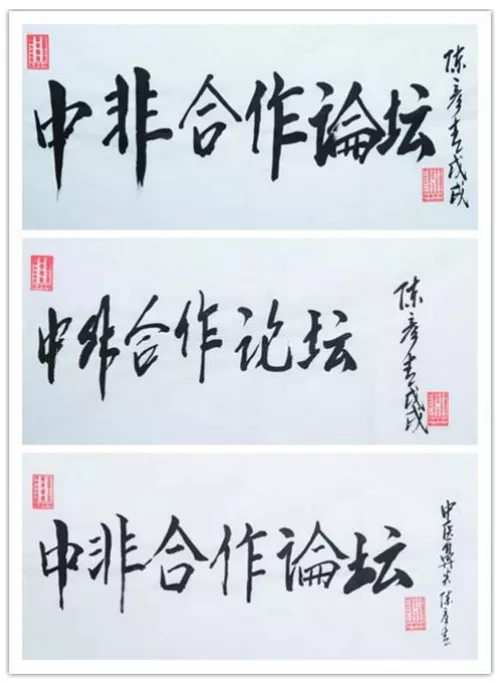 中非合作論坛
陈彦青戊戌
中非合作论坛
陈彦青戊戌
中非合作論坛
陈彦青